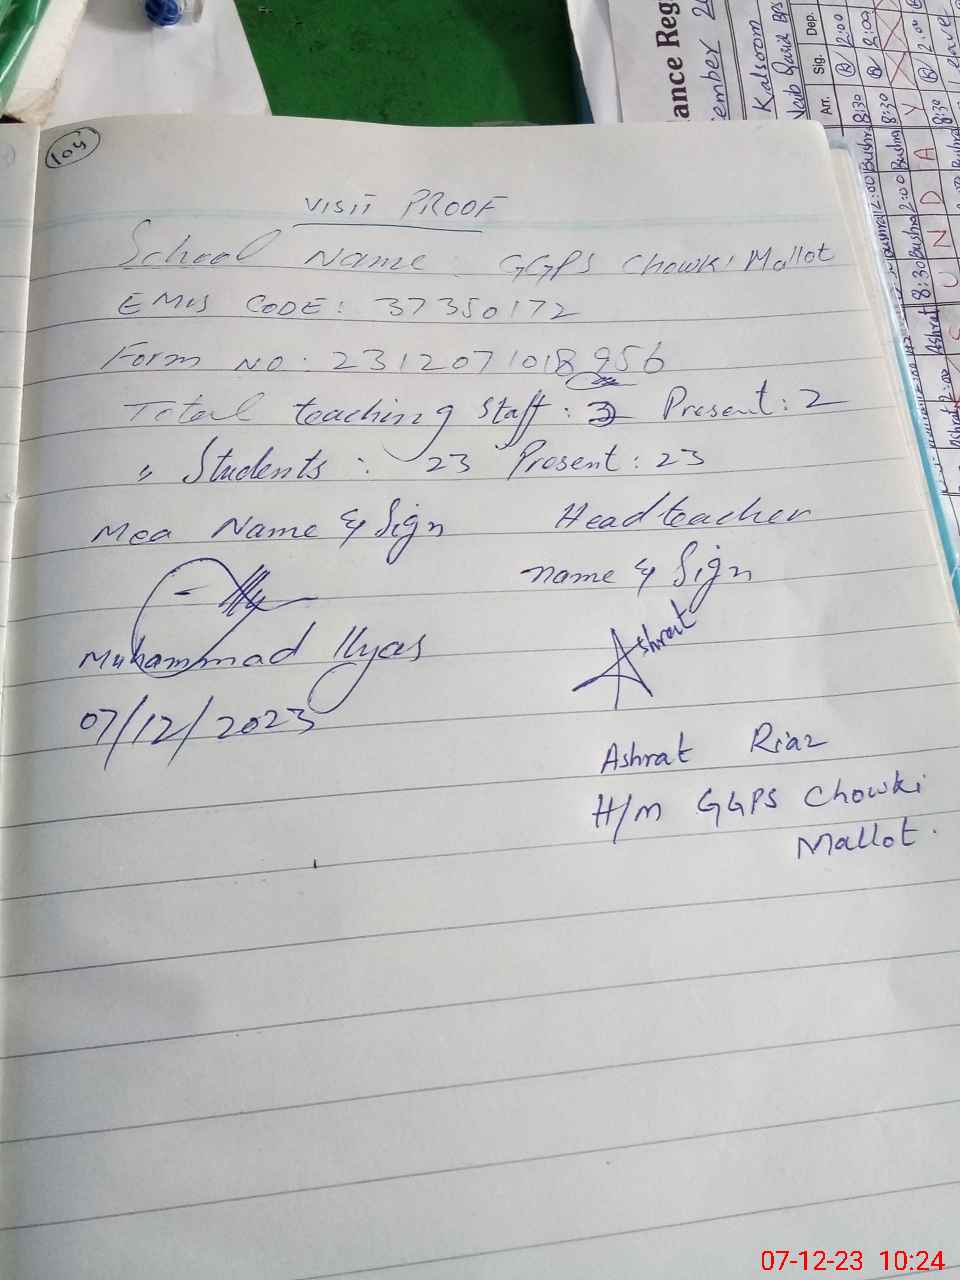 104
VISIT PROOF
School Name: GGPS Chowki Mallot
EMIS CODE: 37350172
Form NO: 2312071018956
Total teaching Staff: 2 Present: 2
" Students: 23 Present: 23
Mea Name & Sign
Headteacher
name & Sign
Muhammad Ilyas
07/12/2023
Ashrat
Ashrat Riaz
H/M GGPS Chowki
Mallot.
ance Reg
ember
Kalsoom
Naib Qasid BPS
Arr. Sig. Dep.
8:30 2:00
8:30 2:00
SUNDAY
8:30 2:00
Leave
07-12-23 10:24